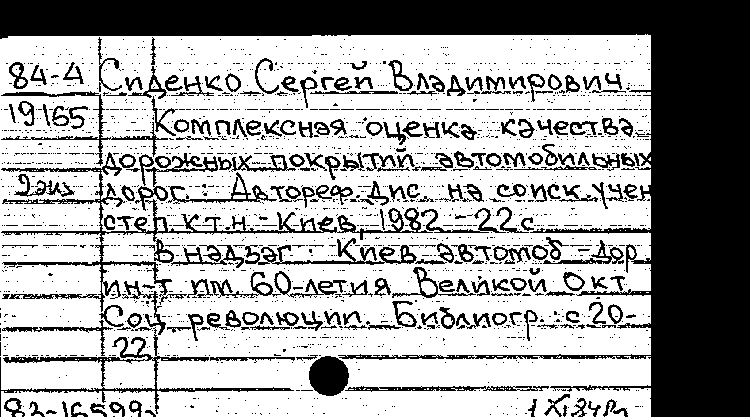 84-4 Сиденко Сергей Владимирович
19165 Комплексная оценка качества
дорожных покрытий автомобильных
2 экз дорог : Автореф. дис. на соиск. учен
степ. к.т.н. - Киев, 1982 - 22 с
В надзаг : Киев. автомоб. - дор.
ин-т им. 60-летия Великой Окт.
Соц. революции. Библиогр. : с. 20-
22
83-16599